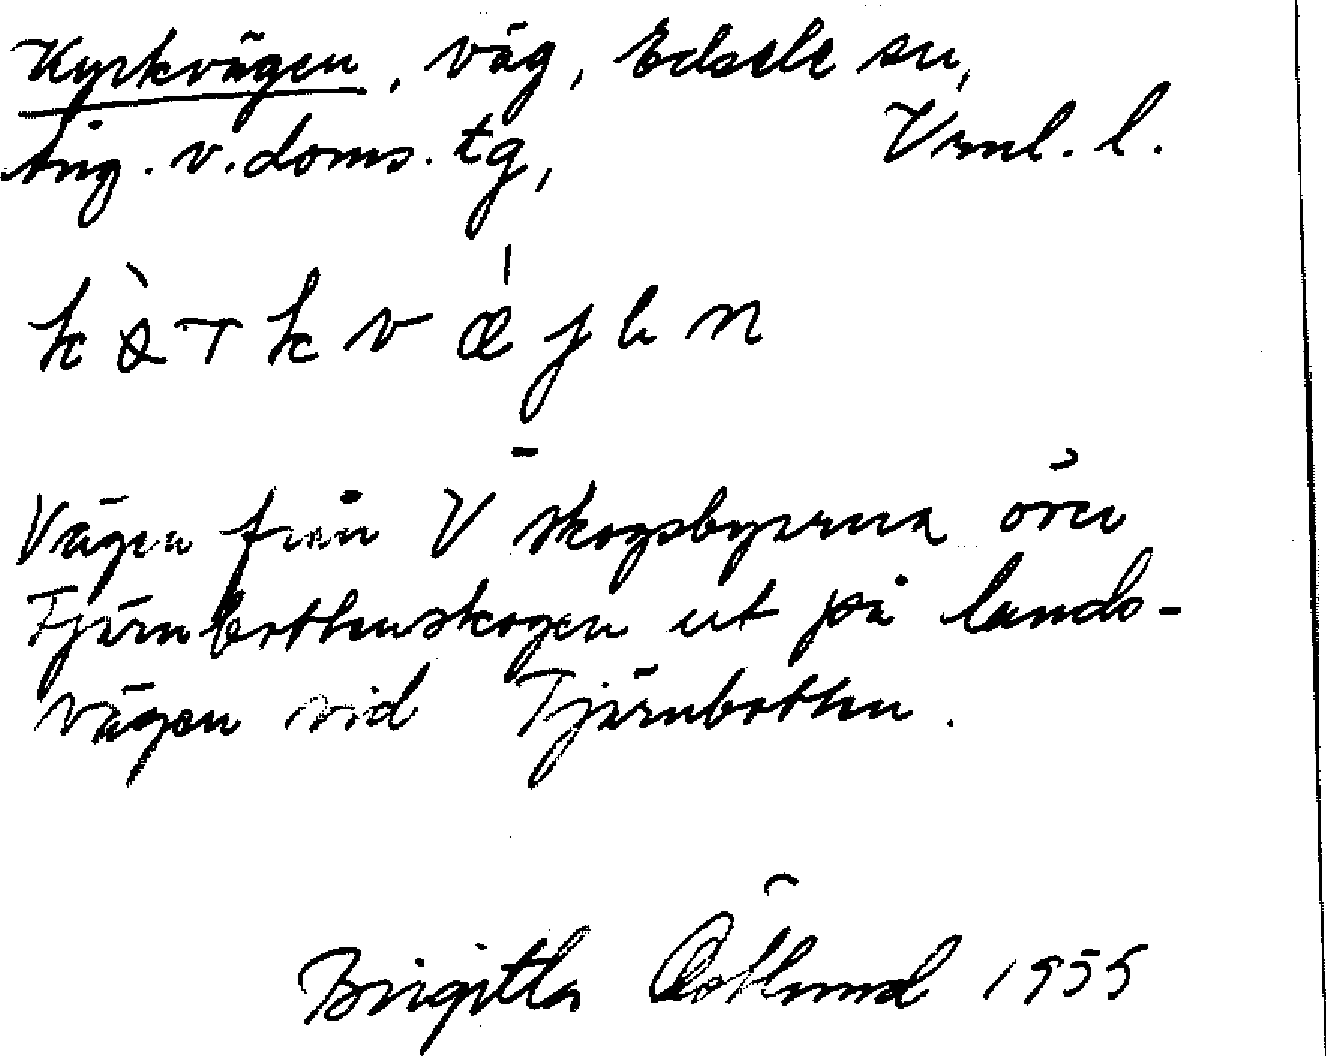 Kyrkvägen, väg, Edsele sn,
Ång. v. doms. tg, Vrnl. l.
Vägen från V skogsbyarna över
Tjärnbottenskogen ut på lands-
vägen vid Tjärnbotten.
Birgitta Östlund 1955